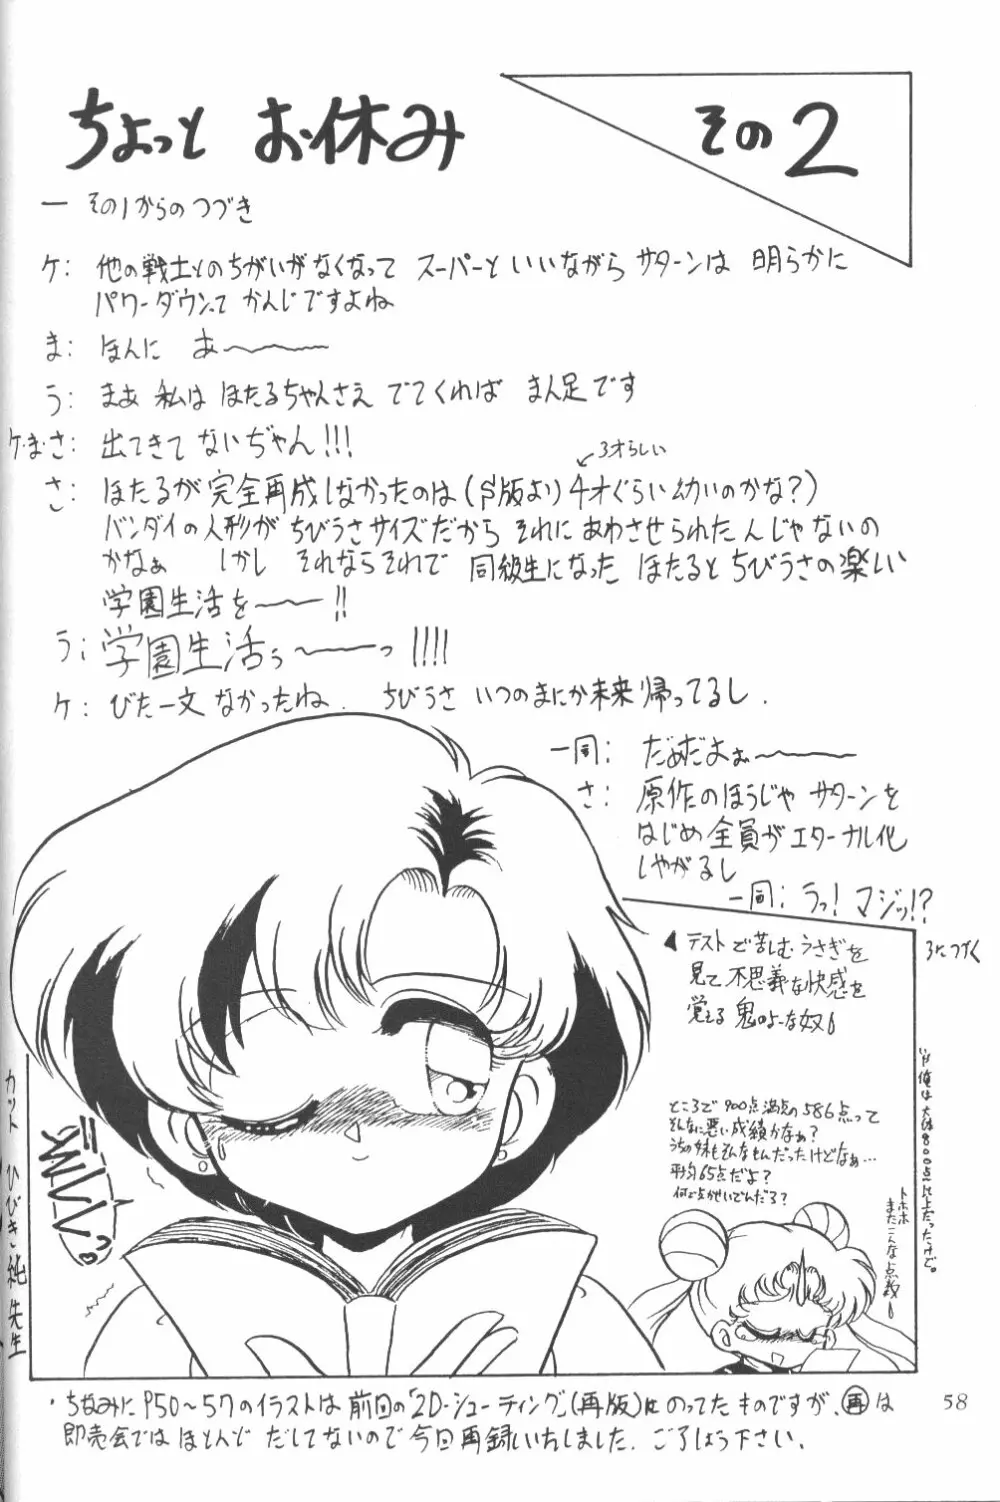 ちょっと お休み
その2
ー その1からのつづき
ケ: 他の戦士とのちがいがなくなって スーパーといいながら サターンは 明らかに
パワーダウンって かんじですよね
ま: ほんに あ〜〜〜
う: まあ 私は ほたるちゃんさえ でてくれば まん足です
ケ・ま・さ: 出てきて ないぢゃん!!!
3才らしい
さ: ほたるが完全再成しなかったのは(S版より 4才ぐらい幼いのかな?)
バンダイの人形が ちびうさサイズだから それに あわさせられたんじゃないの
かなぁ しかし それならそれで 同級生になった ほたると ちびうさの楽しい
学園生活を〜〜!!
う: 学園生活ぅ〜〜っ!!!!
ケ: びた一文 なかったね. ちびうさ いつのまにか未来 帰ってるし.
一同: だめだよぉ〜〜〜
さ: 原作のほうじゃ サターンを
はじめ 全員が エターナル化
しやがるし
一同: うっ! マジッ!?
3につづく
◀ テストで苦しむ うさぎを
見て 不思議な快感を
覚える 鬼のよーな奴
ところで 900点満点の586点って
そんなに悪い成績かなぁ?
うちの妹もそんなもんだったけどなぁ…
平均65点だよ?
トホホ
またこんな点数
カット ひびき純先生
・ちなみに P50〜57のイラストは 前回の「2D・シューティング」(再版)に のってた ものですが、再は
即売会では ほとんど だしてないので 今回 再録いたしました. ご了しょう下さい.
58